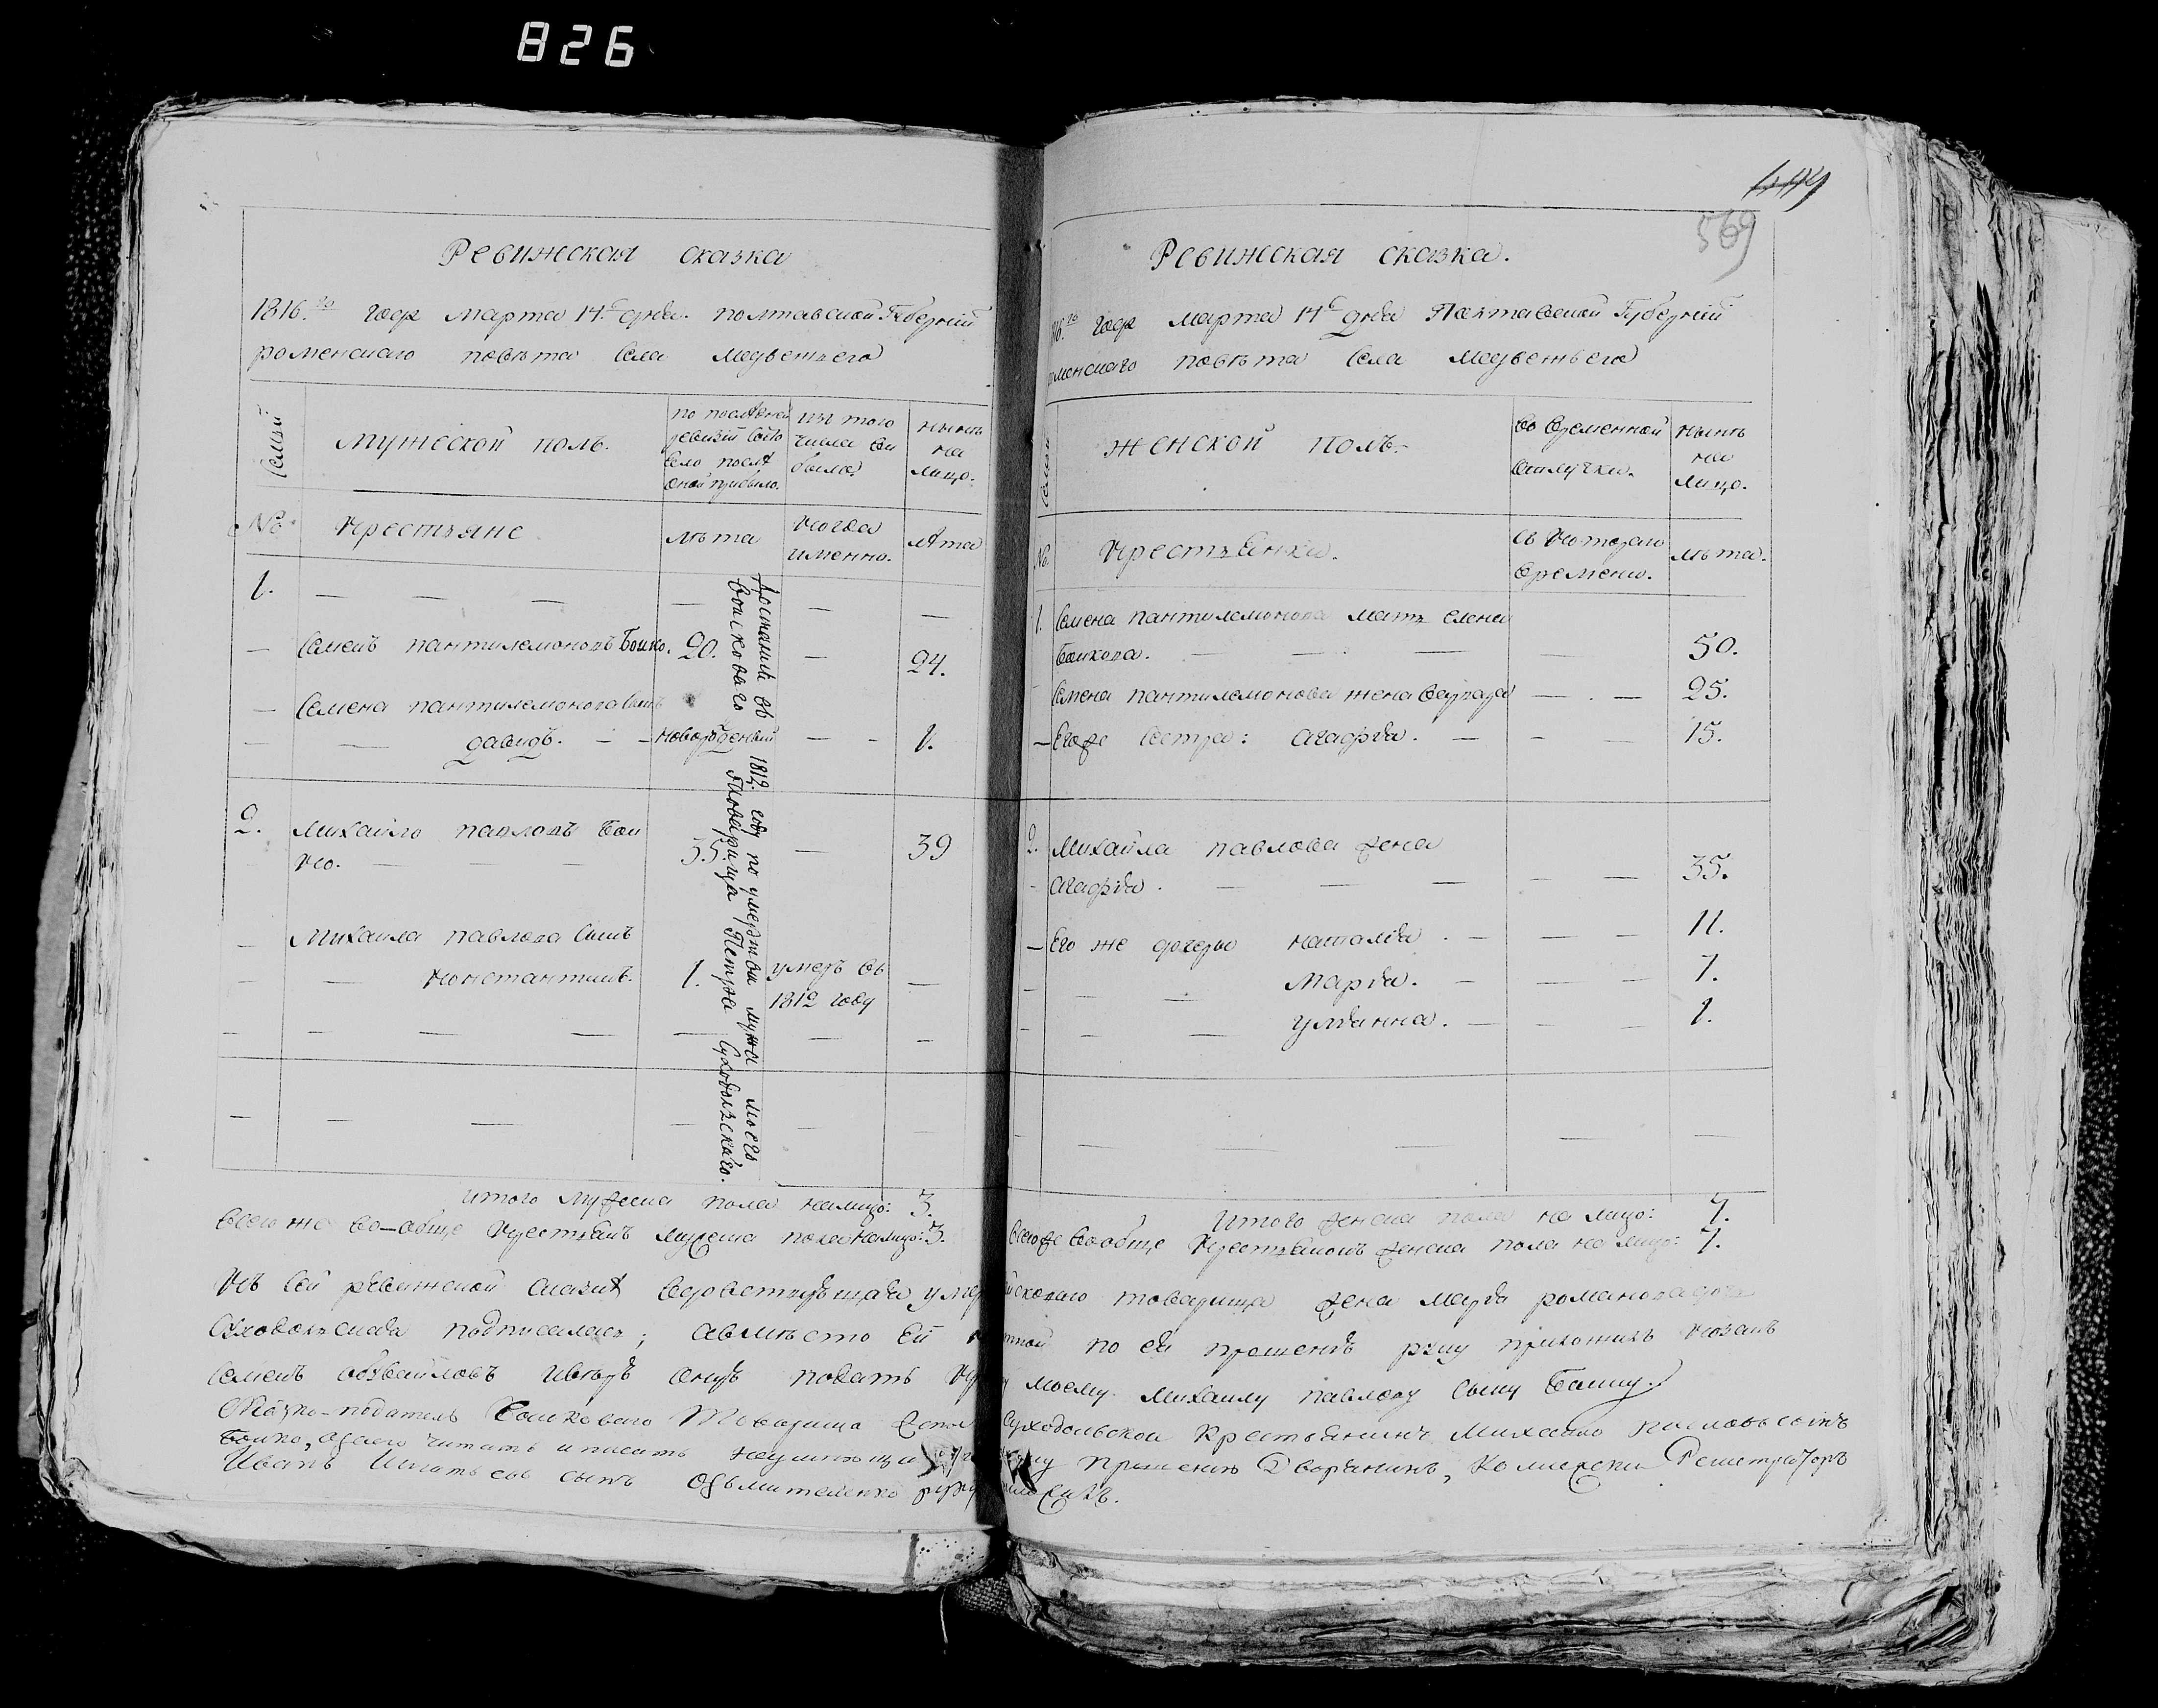 826
Ревижская сказка
1816.го году марта 14.г дня. полтавской Губернїи
роменского повѣта села медвежъего
Семьи
мужеской полъ.
по последней ревизїи состояло и послѣ оной прибыло.
изъ того числа выбыло
нынѣ на лицо.
№
крестьяне
лѣта
когда именно.
лѣта
1.
Семенъ пантилемоновъ Бойко. 20. 24.
Семена пантилемонова сынъ
давидъ. новорожденый 1.
2. михайло павловъ Бой
ко. 35. 39
михаила павлова сынъ
константинъ. 1. умеръ въ 1812 году
Достались въ 1812 году по умертвии мужа моего
Войскового Товарища Петра Суходольского.
итого мужеска пола налицо: 3.
Всего же во-обще крестьянъ мужеска пола налицо: 3.
569
Ревижская сказка.
году марта 14г дня Полтавской Губернїи
менского повѣта села медвежьего
Семьи
женской полъ.
во временной отлучки.
нынѣ на лицо.
№
крестьянки.
съ которого времени.
лѣта.
1. Семена пантилемонова мать елена
Бойкова. 50.
Семена пантилемонова жена 25.
Егоже сестра: агафїя. 15.
2. Михайла павлова жена
агафїя. 35.
Его же дочеры наталїя 11.
марїя. 7.
улїянна. 1.
Итого женска пола на лицо: 7.
всегоже вообще крестьянокъ женска пола на лицо: 7.
Къ сей ревижской сказкѣ войскового товарища жена марїя романова дочь
Суходольская подписалась; авмѣсто ей по ея прошенїю руку приложилъ козакъ
Семенъ подать моему михаилу павлову сыну Бойку.
Сказко-податель Войскового Товарища Суходольской Крестьянинъ Михайло Павловъ сынъ
Бойко, а читать и писать неумѣющи прошенїю Дворянинъ, Колежски Регистраторъ
Иванъ сынъ руку